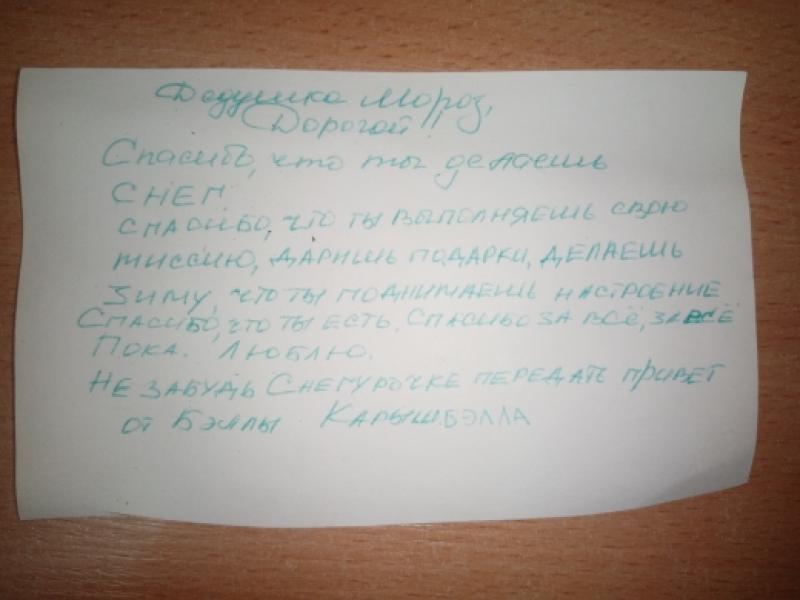 Дедушка Мороз,
Дорогой!!
Спасибо, что ты делаешь
СНЕГ
СПАСИБО, ЧТО ТЫ ВЫПОЛНЯЕШЬ СВОЮ
МИССИЮ, ДАРИШЬ ПОДАРКИ, ДЕЛАЕШЬ
ЗИМУ, ЧТО ТЫ ПОДНИМАЕШЬ НАСТРОЕНИЕ
СПАСИБО, ЧТО ТЫ ЕСТЬ. СПАСИБО ЗА ВСЁ, ЗА ВСЁ
ПОКА. ЛЮБЛЮ.
НЕ ЗАБУДЬ СНЕГУРОЧКЕ ПЕРЕДАТЬ ПРИВЕТ
ОТ БЭЛЛЫ КАРЫШ.БЭЛЛА